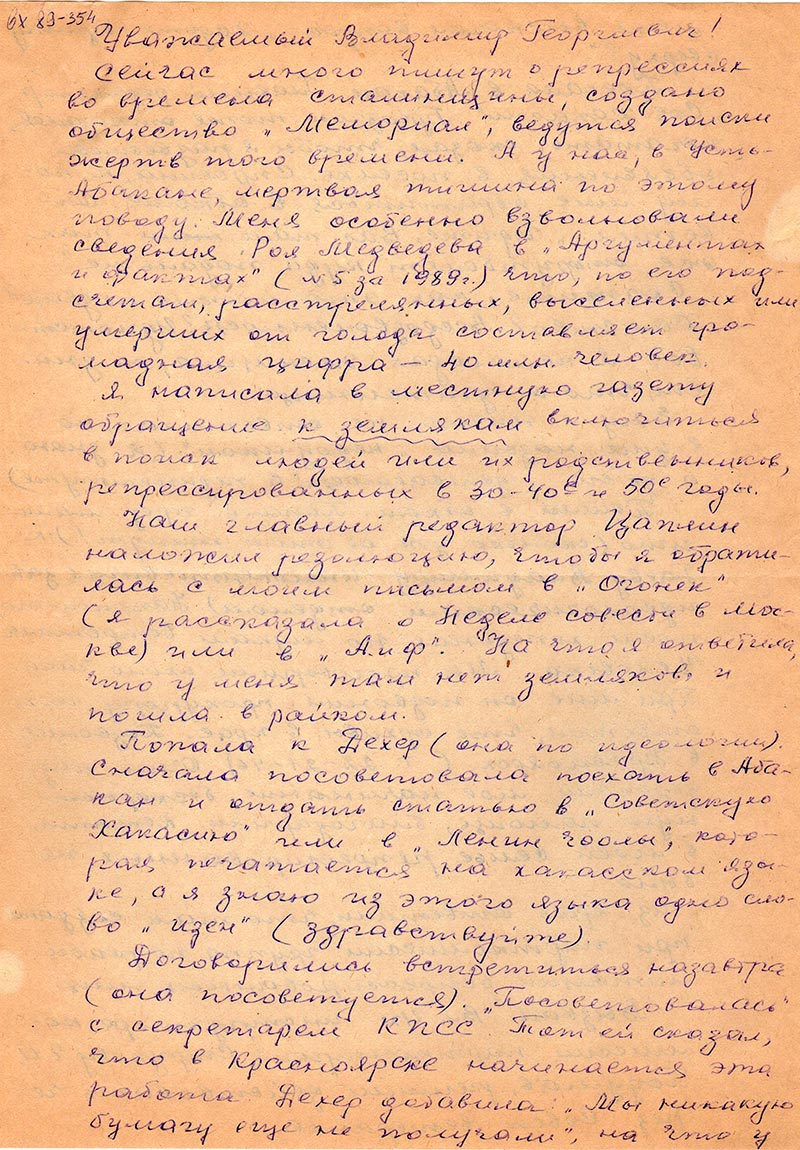 вх 89-354
Уважаемый Владимир Георгиевич!
Сейчас много пишут о репрессиях
во времена сталинщины, создано
общество „Мемориал", ведутся поиски
жертв того времени. А у нас, в Усть-
Абакане, мертвая тишина по этому
поводу. Меня особенно взволновали
сведения Роя Медведева в „Аргументах
и фактах" (№5 за 1989г.) что, по его под-
счетам, расстрелянных, выселенных или
умерших от голода составляет гро-
мадная цифра – 40 млн. человек.
Я написала в местную газету
обращение к землякам включиться
в поиск людей или их родственников,
репрессированных в 30-40е и 50е годы.
Наш главный редактор Цаплин
наложил резолюцию, чтобы я обрати-
лась с моим письмом в „Огонек"
(я рассказала о Неделе совести в Мос-
кве) или в „АиФ". На что я ответила,
что у меня там нет земляков, и
пошла в райком.
Попала к Дехер (она по идеологии).
Сначала посоветовала поехать в Аба-
кан и отдать статью в „Советскую
Хакасию" или в „Ленин чоолы", кото-
рая печатается на хакасском язы-
ке, а я знаю из этого языка одно сло-
во „изен" (здравствуйте).
Договорились встретиться назавтра
(она посоветуется). „Посоветовалась"
с секретарем КПСС. Тот ей сказал,
что в Красноярске начинается эта
работа. Дехер добавила: „Мы никакую
бумагу еще не получали", на что у